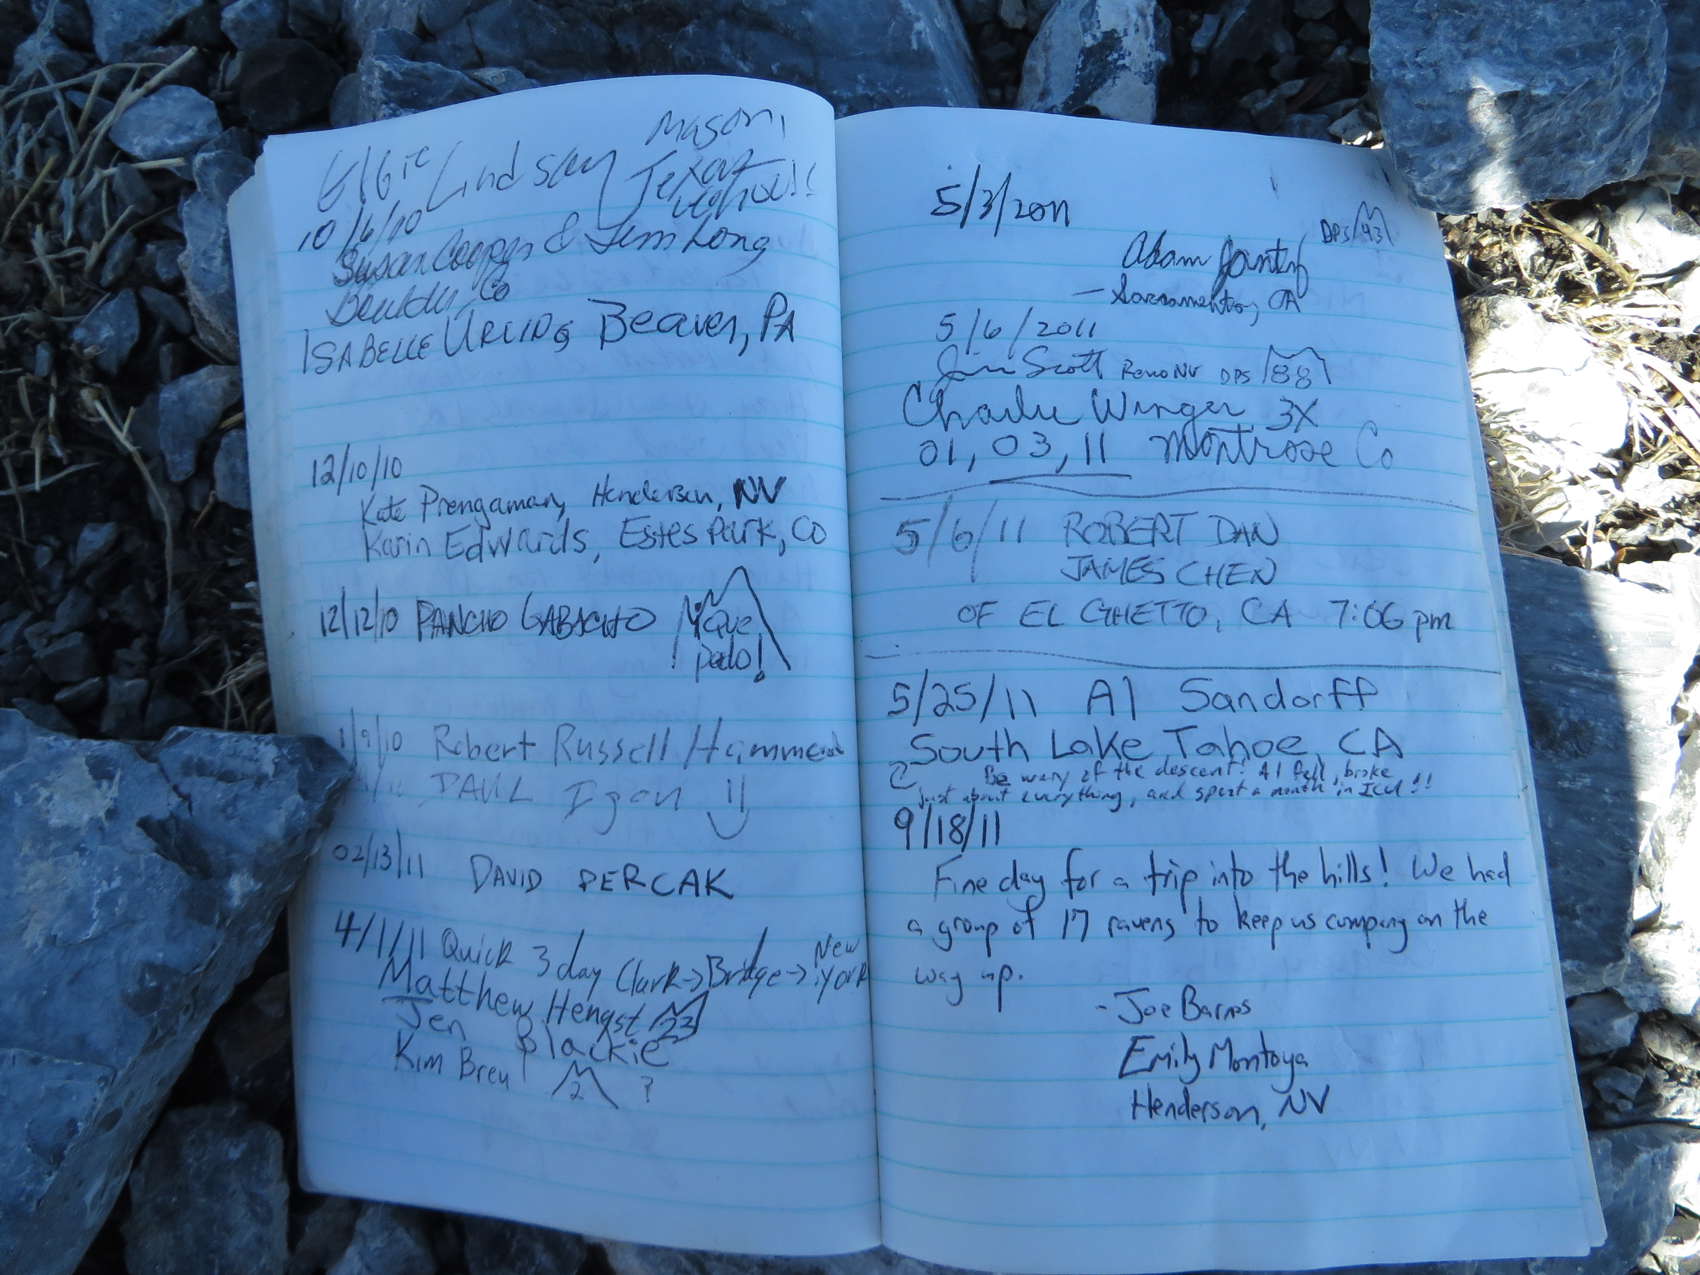 Lindsay Mason,
Texas
10/6/10
Susan Cooper & Jim Long
Boulder, Co
ISABELLE URLING Beaver, PA
12/10/10
Kate Prengaman, Henderson, NV
Karin Edwards, Estes Park, CO
12/12/10 PANCHO GABACHO ¡Que
pedo!
1/9/10 Robert Russell Hammond
PAUL Igon
02/13/11 DAVID PERCAK
4/1/11 Quick 3 day Clark → Bridge → New
York
Matthew Hengst 23
Jen Blackie
Kim Breu 2 ?
5/3/2011
DPS 43
Adam
- Sacramento, CA
5/6/2011
Jim Scott Reno NV DPS 88
Charlie Winger 3X
01, 03, 11 Montrose Co
5/6/11 ROBERT DAN
JAMES CHEN
OF EL GHETTO, CA 7:06 pm
5/25/11 Al Sandorff
South Lake Tahoe, CA
Be wary of the descent! Al fell, broke
just about everything, and spent a month in ICU!!
9/18/11
Fine day for a trip into the hills! We had
a group of 17 ravens to keep us company on the
way up.
- Joe Barnes
Emily Montoya
Henderson, NV